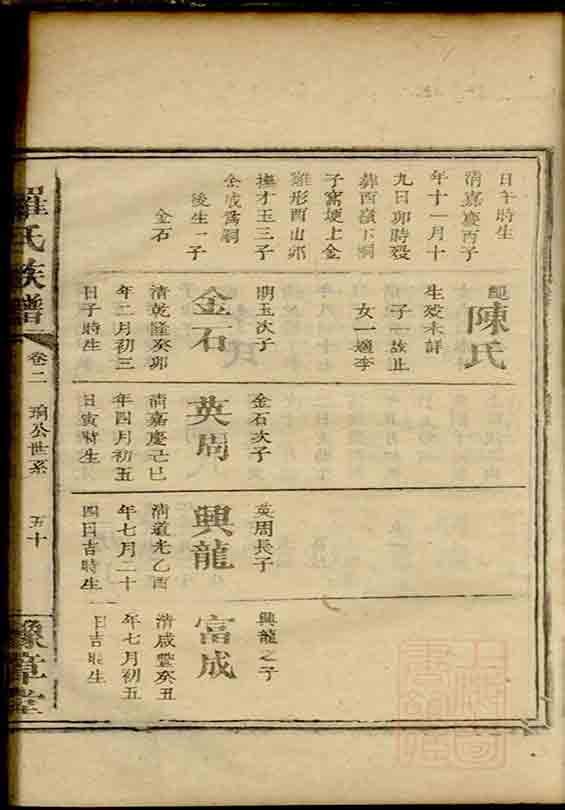 日午時生
清嘉慶丙子
年十一月十
九日卯時歿
葬西嶺下嗣
子窩埂上金
雞形酉山卯
撫才玉三子
金成為嗣
後生一子
金石
陳氏
生歿未詳
子一故止
女一適李
明玉次子
金石
清乾隆癸卯
年二月初三
日子時生
金石次子
英周
清嘉慶己巳
年四月初五
日寅時生
英周長子
興龍
清道光乙酉
年七月二十
四日吉時生
興龍之子
富成
清咸豐癸丑
年七月初五
日吉時生
羅氏族譜
卷二
公世系
五十
豫章堂
上海圖
書館藏